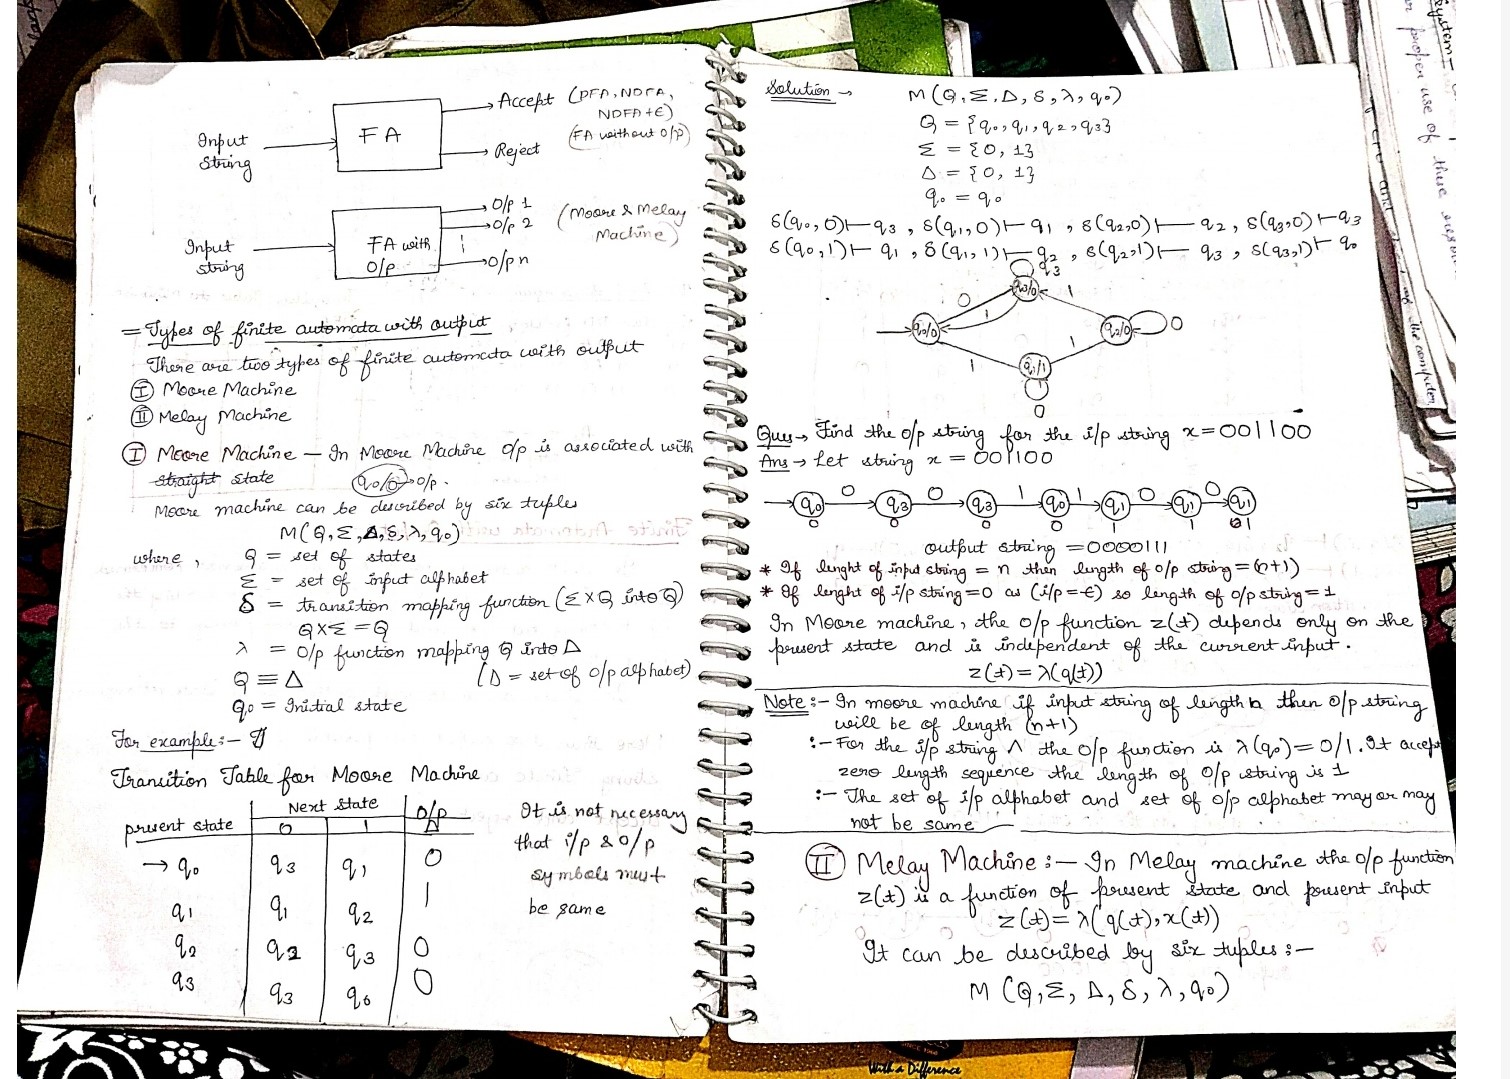 Accept (DFA, NDFA,
NDFA+ε)
Input
string
FA
(FA without o/p)
Reject
O/p 1
O/p 2
(Moore & Melay
Machine)
Input
string
FA with
O/p
O/p n
= Types of finite automata with output
There are two types of finite automata with output
I Moore Machine
II Melay Machine
I Moore Machine — In Moore Machine O/p is associated with
straight state q0/0 → o/p.
Moore machine can be described by six tuples
M(Q, Σ, Δ, δ, λ, q0)
where, Q = set of states
Σ = set of input alphabet
δ = transition mapping function (Σ×Q into Q)
Q×Σ = Q
λ = O/p function mapping Q into Δ
Q ≡ Δ (Δ = set of o/p alphabet)
q0 = Initial state
For example:-
Transition Table for Moore Machine
present state Next state O/p
0 1 Δ
→ q0 q3 q1 0
q1 q1 q2 1
q2 q2 q3 0
q3 q3 q0 0
It is not necessary
that i/p & o/p
symbols must
be same
Solution →
M(Q, Σ, Δ, δ, λ, q0)
Q = {q0, q1, q2, q3}
Σ = {0, 1}
Δ = {0, 1}
q0 = q0
δ(q0,0)⊢q3, δ(q1,0)⊢q1, δ(q2,0)⊢q2, δ(q3,0)⊢q3
δ(q0,1)⊢q1, δ(q1,1)⊢q2, δ(q2,1)⊢q3, δ(q3,1)⊢q0
q3
q3/0
0 1 1
q0/0 q2/0 0
1 1
q1/1
0
Ques → Find the o/p string for the i/p string x = 001100
Ans → Let string x = 001100
q0 0 q3 0 q3 1 q0 1 q1 0 q1 0 q1
0 0 0 0 1 1 1
output string = 0000111
* If lenght of input string = n then length of o/p string = (n+1)
* If lenght of i/p string = 0 as (i/p = ε) so length of o/p string = 1
In Moore machine, the o/p function z(t) depends only on the
present state and is independent of the current input.
z(t) = λ(q(t))
Note :- In moore machine if input string of length n then O/p string
will be of length (n+1)
:- For the i/p string Λ the o/p function is λ(q0) = 0/1. It accep
zero length sequence the length of O/p string is 1
:- The set of i/p alphabet and set of o/p alphabet may or may
not be same
II Melay Machine :- In Melay machine the o/p function
z(t) is a function of present state and present input
z(t) = λ(q(t), x(t))
It can be described by six tuples :-
M (Q, Σ, Δ, δ, λ, q0)
system
r proper use of these
the computer
With a Difference